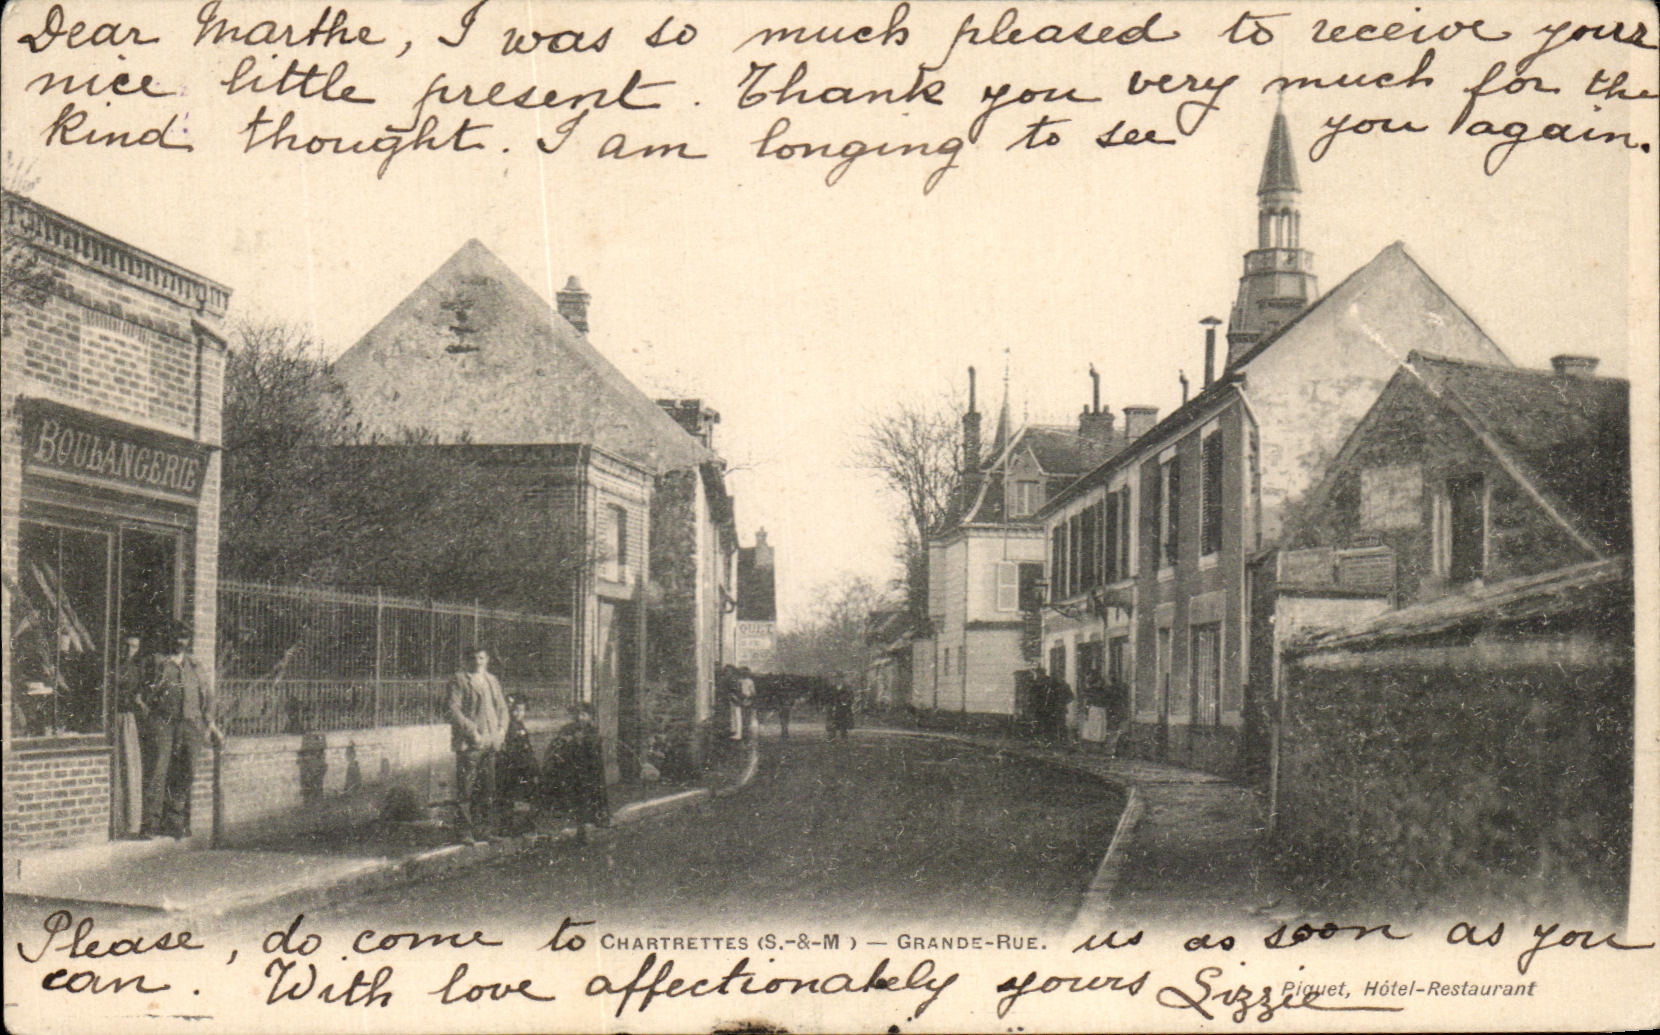 Dear Marthe, I was so much pleased to receive your
nice little present. Thank you very much for the
kind thought. I am longing to see you again.
BOULANGERIE
Please, do come to CHARTRETTES (S.-&-M) — GRANDE-RUE. us as soon as you
can. With love affectionately yours Lizzie
Piquet, Hôtel-Restaurant